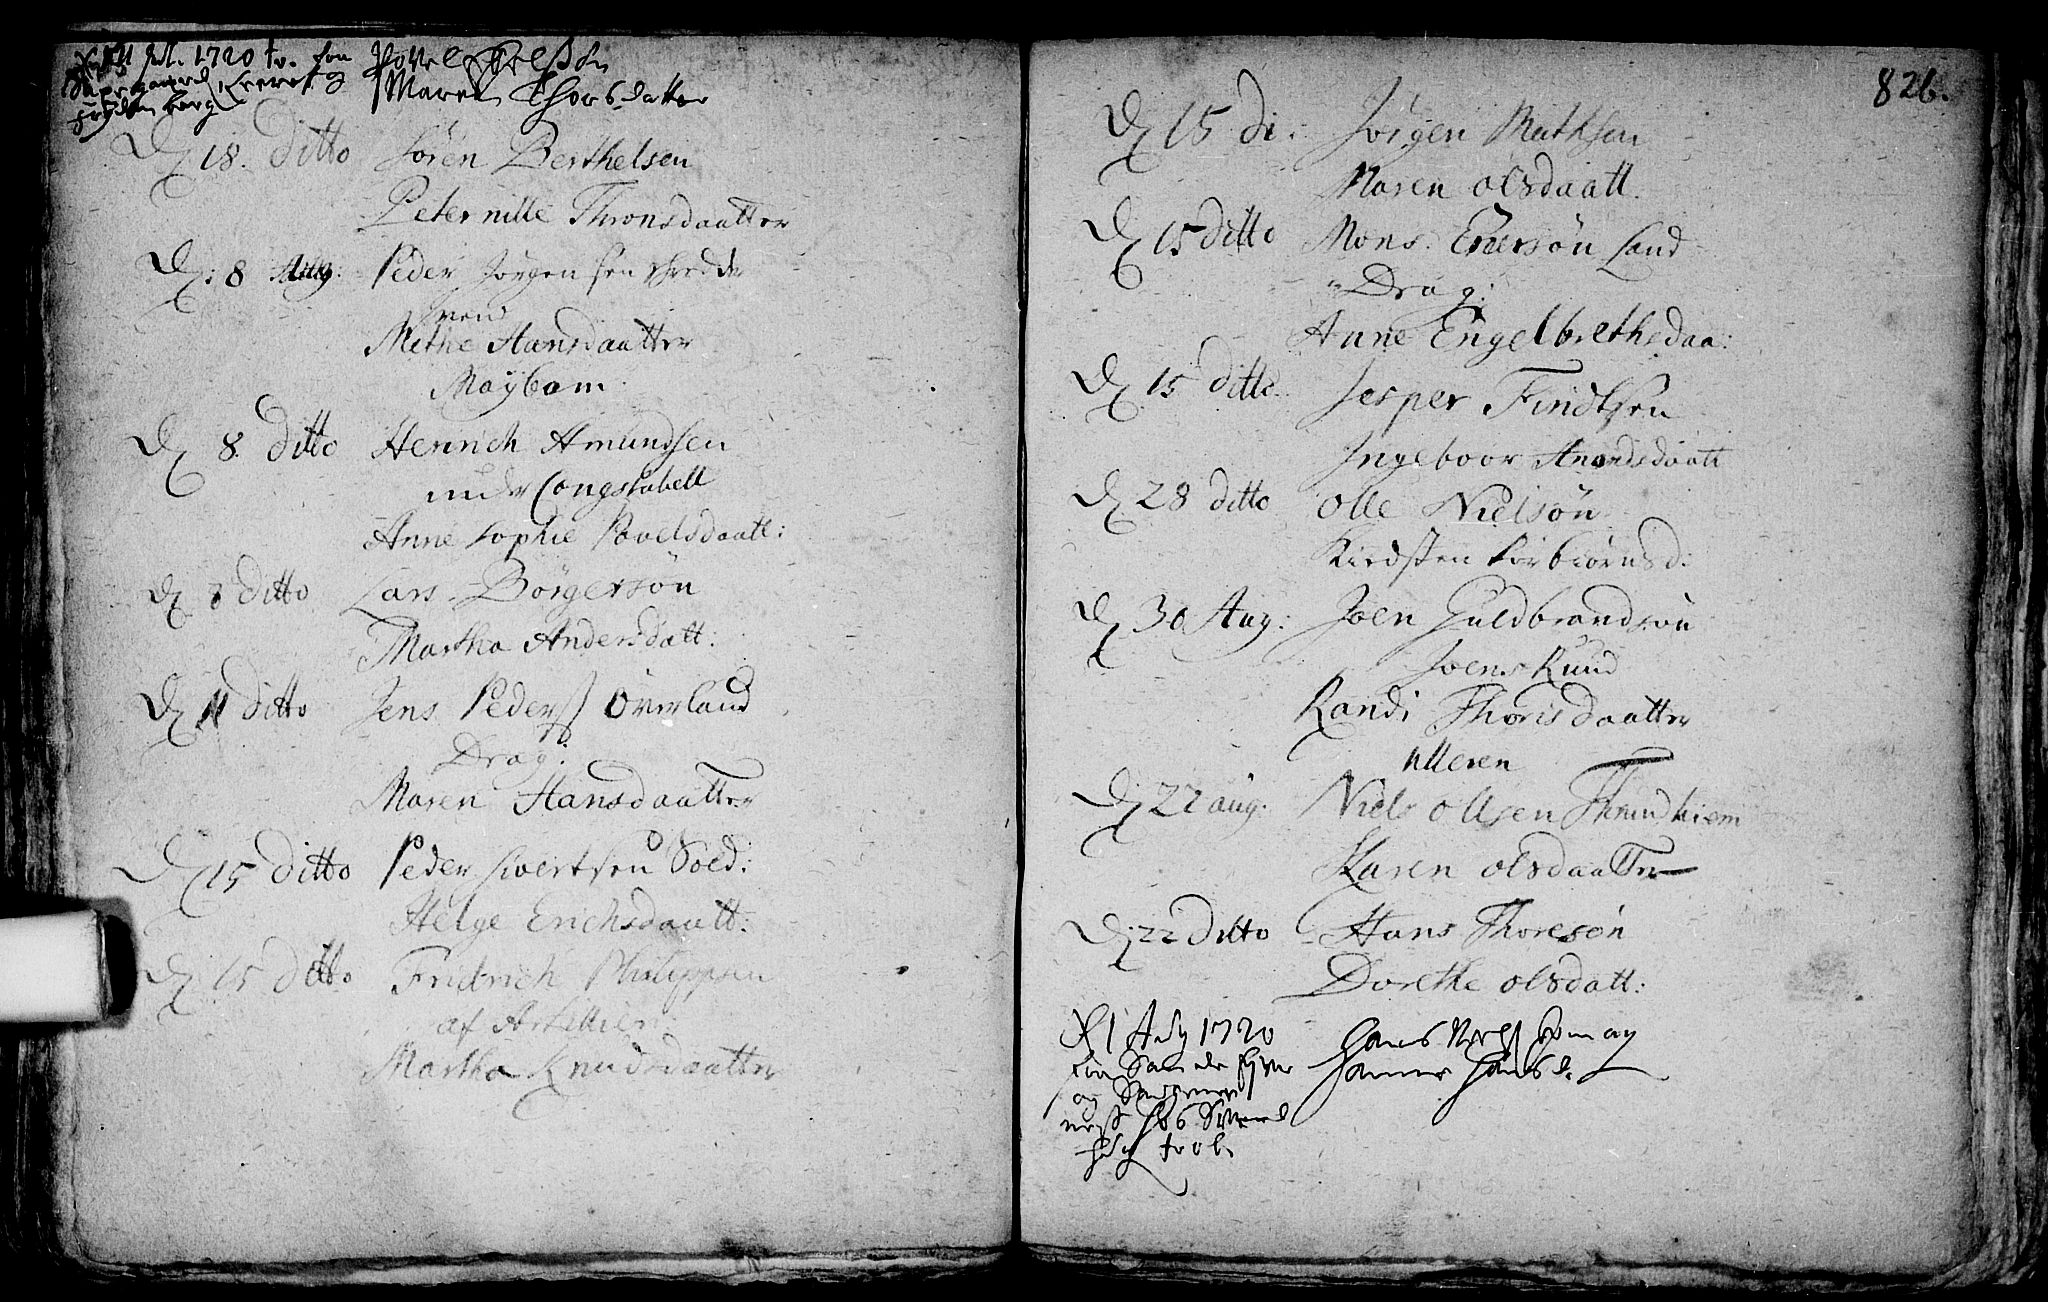 1720
Povel
Maren Thorsdatter
18. Ditto Sören Berthelsen
Peternille Thronsdaatter
8 Aug: Peder Jörgensen
svend
Methe Hansdaatter
Maÿbom.
8. Ditto Henrich Amundsen
under Congstabell
Anne Sophie Povelsdaatt:
8 Ditto Lars Börgersön
Martha Andersdatt:
11 Ditto Jens Peders Overland
Drag:
Maren Hansdaatter
15 Ditto Peder Sivertsen Sold:
Helge Erichsdaatt:
15 Ditto Fridrich Philippsen
af Artillier
Martha Knudsdaatter
826.
15 di. Jörgen Mathsen
Maren olsdaatt.
15 Ditto Mons. Enersön Land
Drag:
Anne Engelbrethsdaa:
15 Ditto Jesper Findtsen
Ingeboor Amondsdaatt
28 Ditto Olle Nielsön
Kirdsten Torbiörnsd:
30 Aug: Joen Guldbrandsön
Joens Ruud
Randi Thorisdaatter
ulleren
22 aug. Niels ollsen Thrundhiem
Karen olsdaatter
22 Ditto Hans Thoresön
Dorethe olsdatt:
1 1720 Hans
Hansd.
og